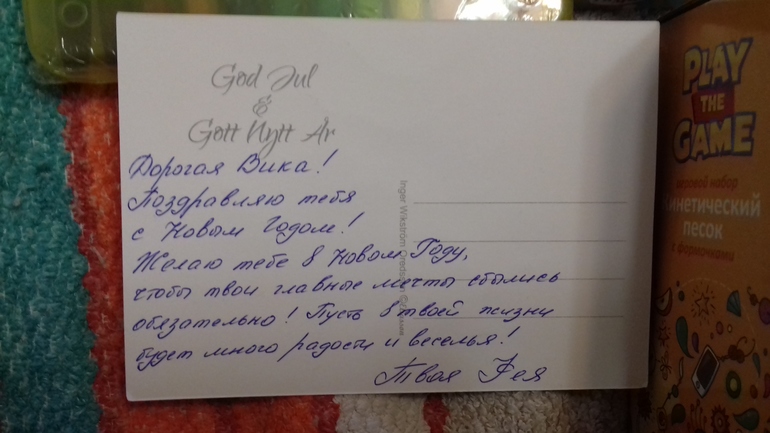 God Jul
&
Gott Nytt År
Дорогая Вика!
Поздравляю тебя
с Новым Годом!
Желаю тебе в Новом Году,
чтобы твои главные мечты сбылись
обязательно! Пусть в твоей жизни
будет много радости и веселья!
Твоя Фея
Inger Wikström
PLAY
THE
GAME
игровой набор
Кинетический
песок
с формочками